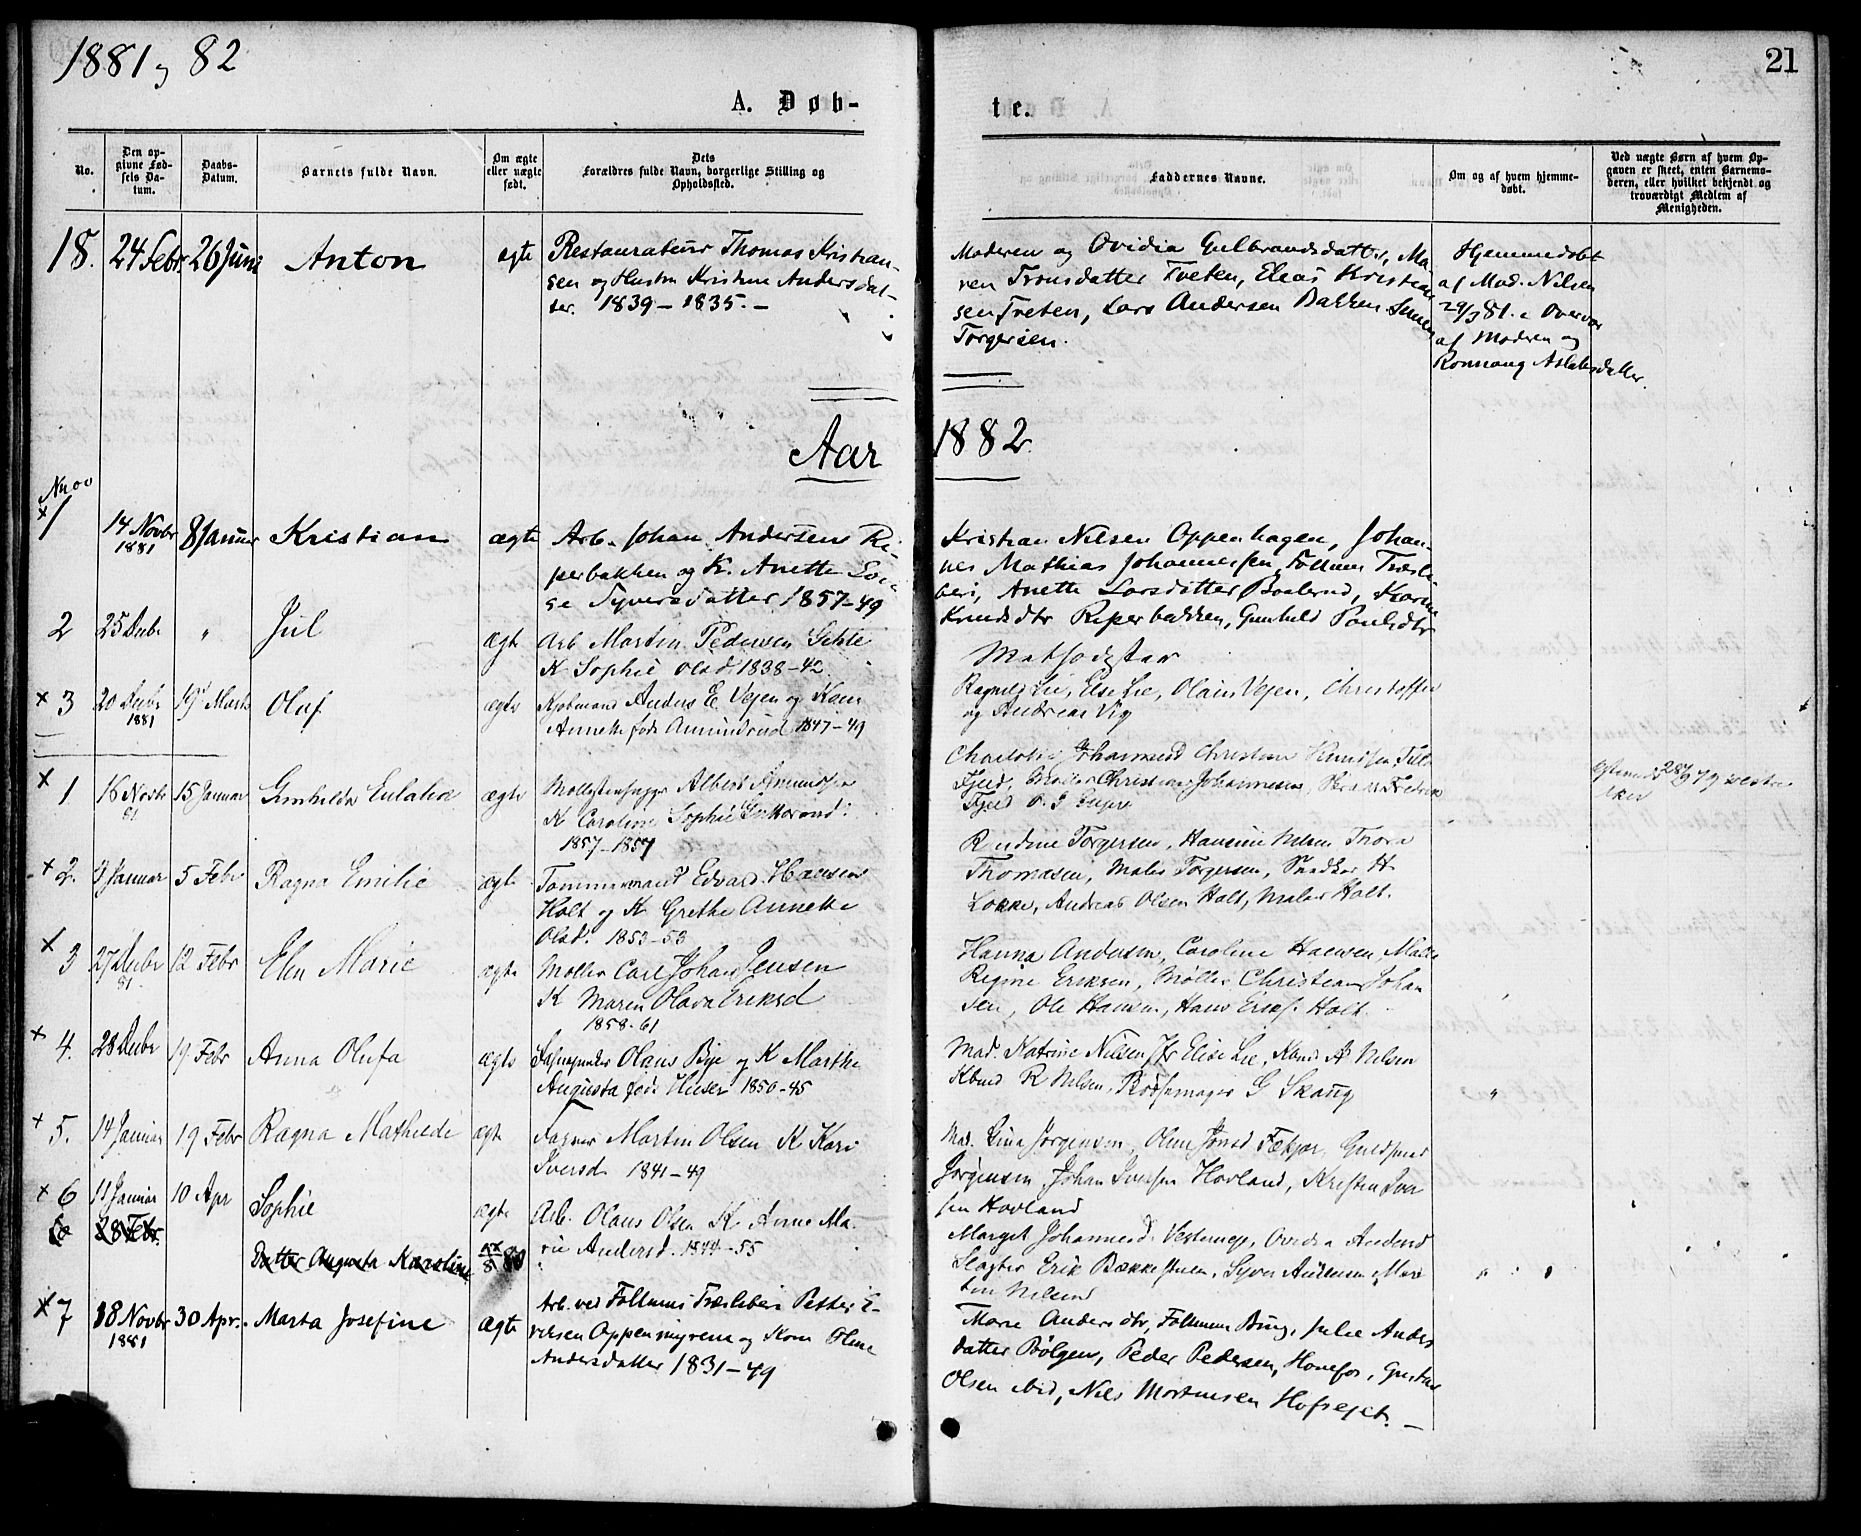 1881 og 82
21
A. Døb-
te.
No.
Den op-
givne Fød-
sels Da-
tum.
Daabs-
Datum.
Barnets fulde Navn.
Om ægte
eller uægte
født.
Dets
Forældres fulde Navn, borgerlige Stilling og
Opholdssted.
Faddernes Navne.
Om og af hvem hjemme-
døbt.
Ved uægte Børn af hvem Op-
gaven er skeet, enten Barnemo-
deren, eller hvilket bekjendt og
troværdigt Medlem af
Menigheden.
18. 24 Febr. 26 Juni Anton ægte Restaurateur Thomas Kristian-
sen og Hustru Kristine Andersdat-
ter. 1839 – 1835. –
Moderen og Ovidia Gulbrandsdatter, Ma-
ren Tronsdatter Tveten, Eleas Kristian
sen Tveten, Lars Andersen Bakken
Torgersen.
Hjemmedøbt
af Mad. Nilsen
29/3 81. Overvær
af Moderen og
Ronnaug Aslaksdatter.
Aar 1882.
x 1 14 Novbr 1881 8 Januar Kristian ægte Arb. Johan Andersen Ri-
perbakken og K. Anette Lovi
se Syversdatter 1857–49
Kristian Nilsen Oppenhagen, Johan-
nes Mathias Johannessen, Follum Træsli-
beri, Anette Larsdatter, Karine
Knudsdtr Riperbakken, Gunhild Poulsdtr
2 25 Decbr " Jul ægte Arb Martin Pedersen
K Sophie Olsd 1838–42
Methodister
x 3 20 Decbr 1881 19 Marts Oluf ægte Kjøbmand Anders E. Vejen og Kone
Annette født Amundrud 1847–49
Ragnild Lie, Else Lie, Olaus Vejen, Christoffer
og Andreas Vig
x 1 16 Novbr 81 15 Januar Gunhilda Eulalia ægte Albert Amundsen
K Caroline Sophie
1857–1857
Charlotte Johannesd Christian Knudsen
Fjeld, Møller Christian Johannesen, Fredrik
Fjeld
x 2. 9 Januar 5 Febr Ragna Emilie ægte Tømmermand Edvard Hansen
Holt og K Grethe Annette
Olsd. 1853–53
Torgersen, Nelsen Thora
Thomasen, Maler Torgersen, H
Løkke, Andreas Olsen Holt, Maler Holt.
x 3 27 Decbr 81. 12 Febr Elen Marie ægte Møller Carl Johan Jensen
K Maren Olava Eriksd
1858–61
Hanna Andersen, Caroline Hansen
Regine Eriksen, Møller Christian Johan
sen, Ole Hansen, Hans Eriks. Holt.
x 4. 28 Decbr 19 Febr Anna Olufa ægte Olaus Bye og K Marthe
Augusta født 1850–45
Mad. Katrine Nilsen, Jfr Elise Lie, Kbmd A Nelsen
Kbmd R Nelsen, Bøssemager G Skaug
"
x 5. 14 Januar 19 Febr Ragna Mathilde ægte Farver Martin Olsen K Kari
Iversd 1841–49
Mad. Lina Jørgensen, Guldsmed
Jørgensen, Johan Iversen Hovland, Kristen Iver
sen Hovland
x 6 11 Januar 10 Apr Sophie ægte Arb. Olaus Olsen K. Anne Ma-
rie Andersd. 1844–55
Marget Johannesd.
Slagter Erik Bækkestuen, Syver Andersen, Mar
tin Nelsen
28 Febr.
Datter Augusta Karoline
x 7 18 Novbr 1881 30 Apr. Marta Josefine ægte Arb. ved Follums Træsliberi Petter E-
riksen Oppenmyrene og Kone Oline
Andersdatter 1831–49
Marie Andersdtr, Follum Brug, Julie Anders
datter Bølgen, Peder Pedersen, Hønefos, Gustav
Olsen ibid, Nils Mortensen Hofseget. –